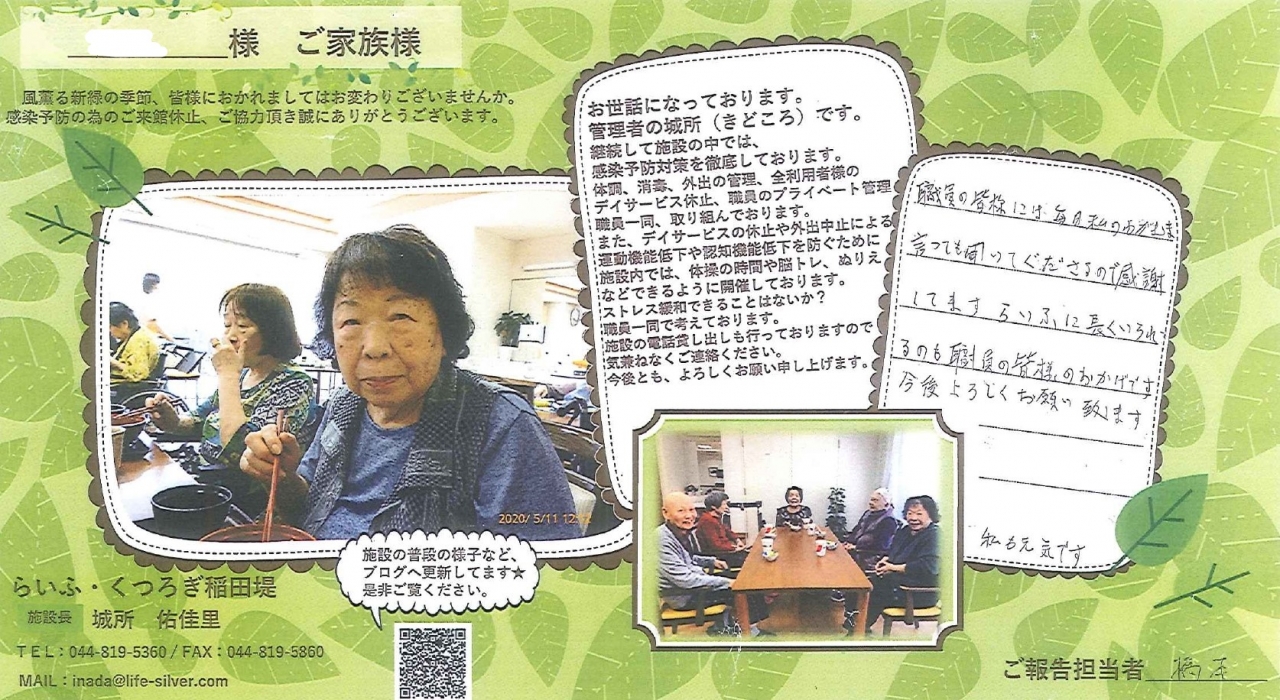 様 ご家族様
風薫る新緑の季節、皆様におかれましてはお変わりございませんか。
感染予防の為のご来館休止、ご協力頂き誠にありがとうございます。
お世話になっております。
管理者の城所（きどころ）です。
継続して施設の中では、
感染予防対策を徹底しております。
体調、消毒、外出の管理、全利用者様の
デイサービス休止、職員のプライベート管理
職員一同、取り組んでおります。
また、デイサービスの休止や外出中止による
運動機能低下や認知機能低下を防ぐために
施設内では、体操の時間や脳トレ、ぬりえ
などできるように開催しております。
ストレス緩和できることはないか？
職員一同で考えております。
施設の電話貸し出しも行っておりますので
気兼ねなくご連絡ください。
今後とも、よろしくお願い申し上げます。
職員の皆様には毎日私のわがままを
言っても聞いてくださるので感謝
してます らいふに長くいられ
るのも職員の皆様のおかげです
今後よろしくお願い致ます
私も元気です
2020/ 5/11 12:
施設の普段の様子など、
ブログへ更新してます★
是非ご覧ください。
らいふ・くつろぎ稲田堤
施設長 城所 佑佳里
ＴＥＬ：044-819-5360 / FAX：044-819-5860
MAIL：inada@life-silver.com
ご報告担当者